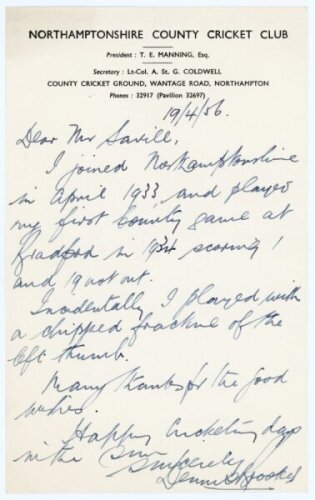 NORTHAMPTONSHIRE COUNTY CRICKET CLUB
President : T. E. MANNING, Esq.
Secretary : Lt-Col. A. St. G. COLDWELL
COUNTY CRICKET GROUND, WANTAGE ROAD, NORTHAMPTON
Phones : 32917 (Pavilion 32697)
19/4/56.
Dear Mr Savill,
I joined Northamptonshire
in April 1933, and played
my first County game at
Bradford in 1934 scoring 1
and 19 not out.
Incidentally I played with
a chipped fracture of the
left thumb.
Many thanks for the good
wishes.
Happy Cricketing days
in the sun
Sincerely
Dennis Brookes